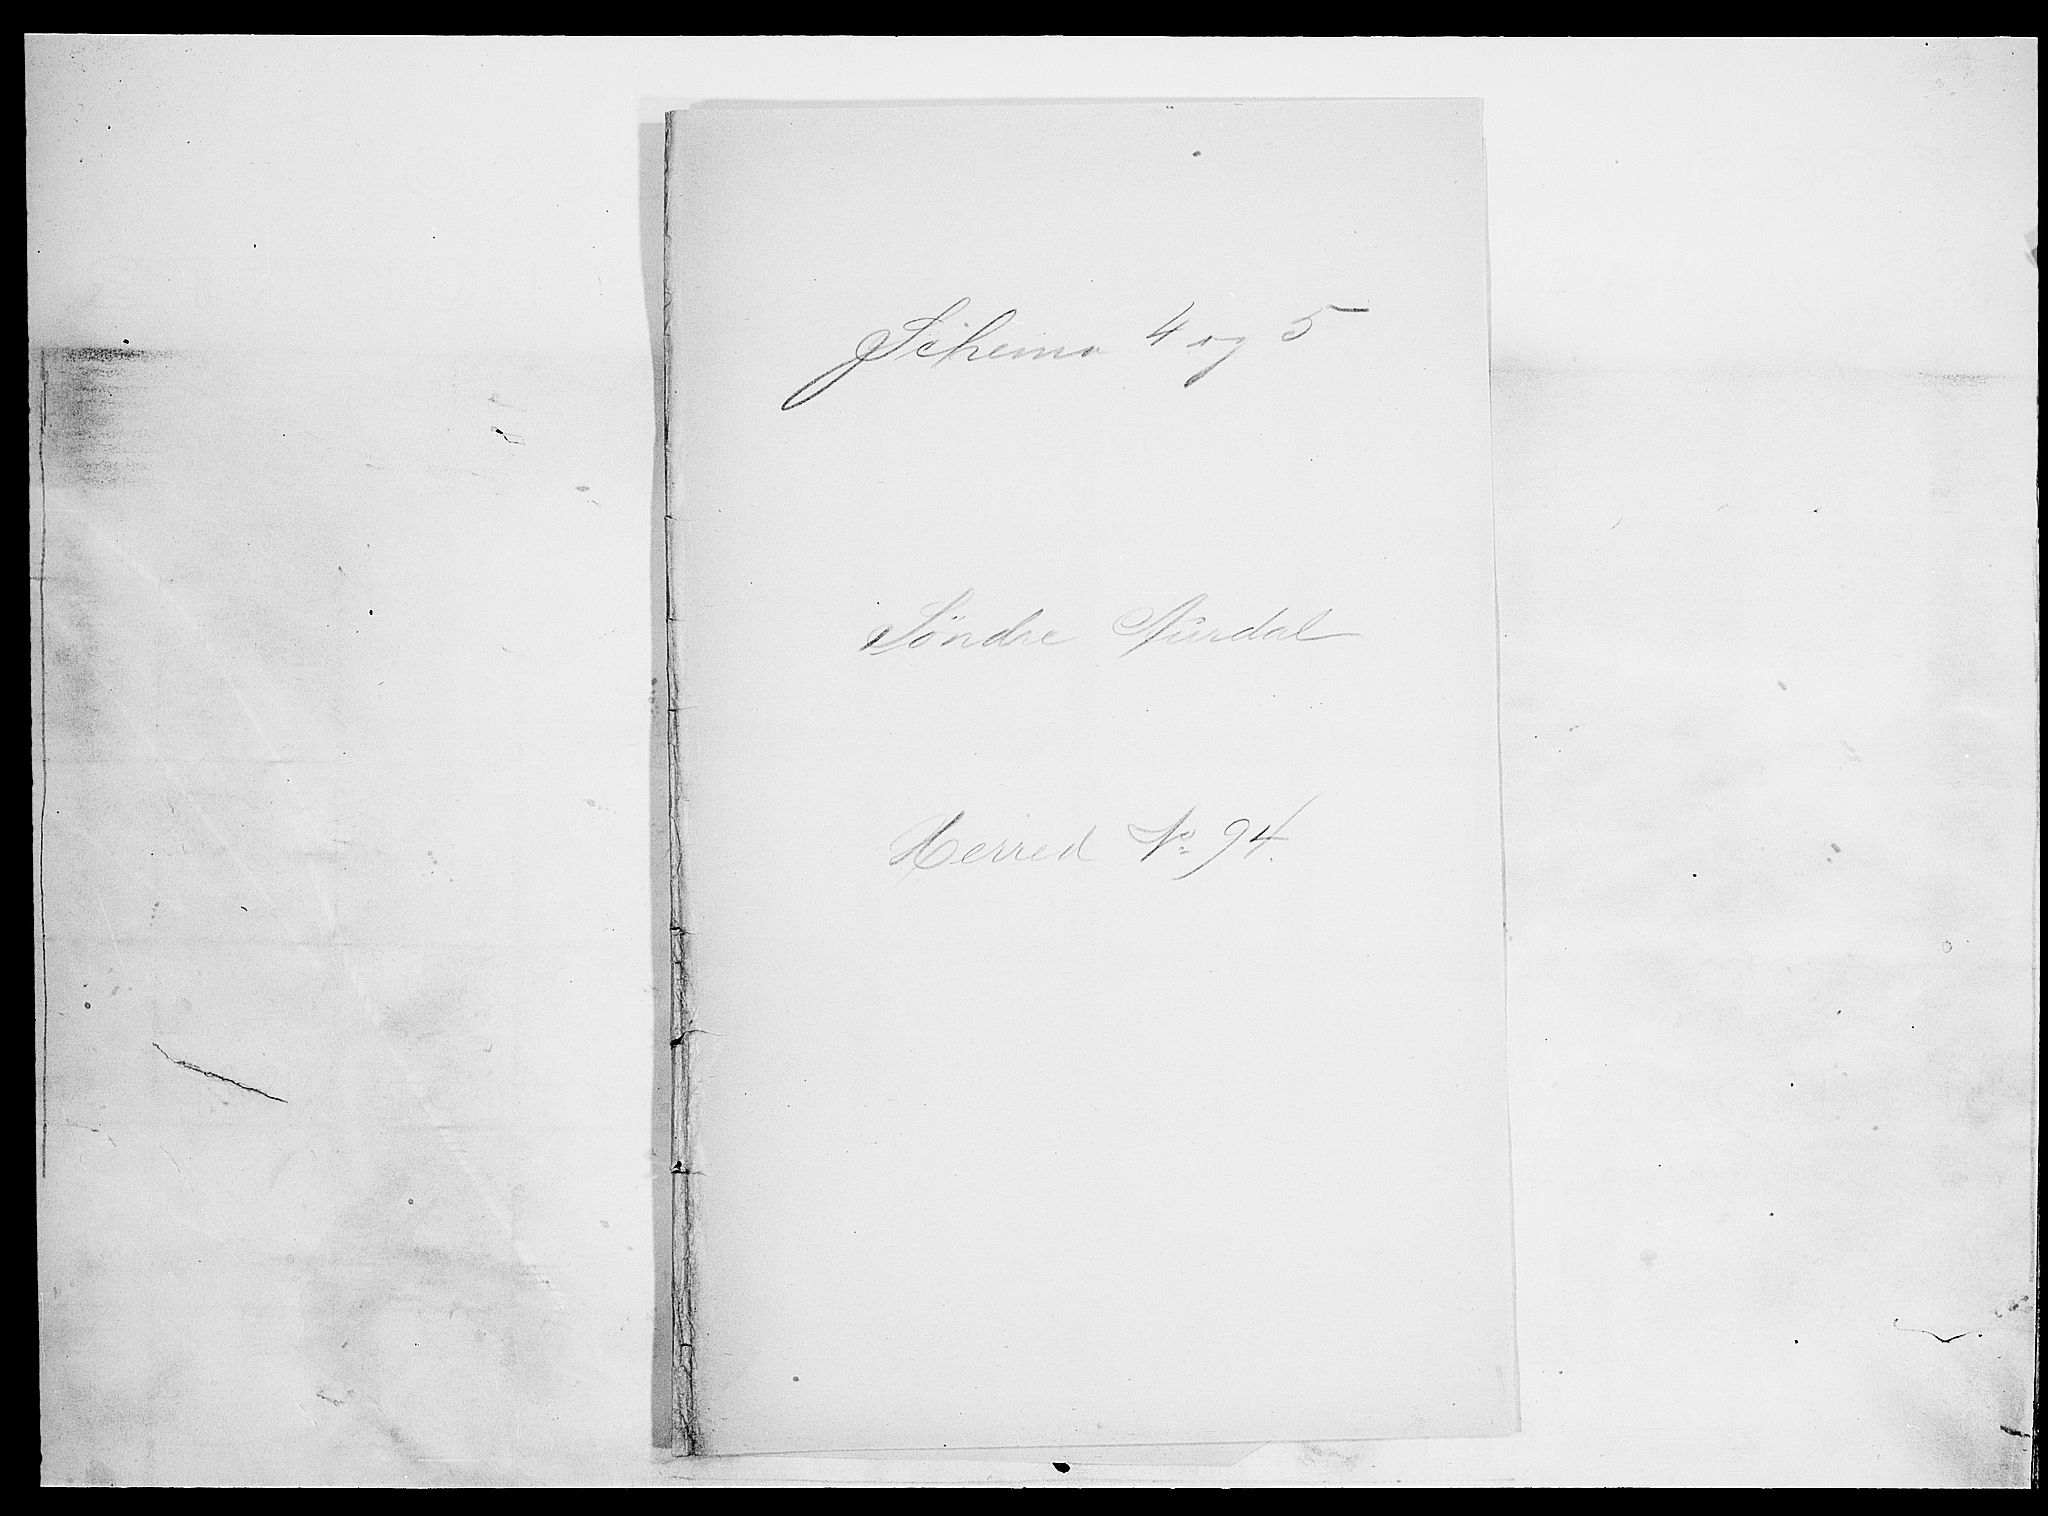 Schema 4 og 5
Söndre Aurdal
Herred No 94.